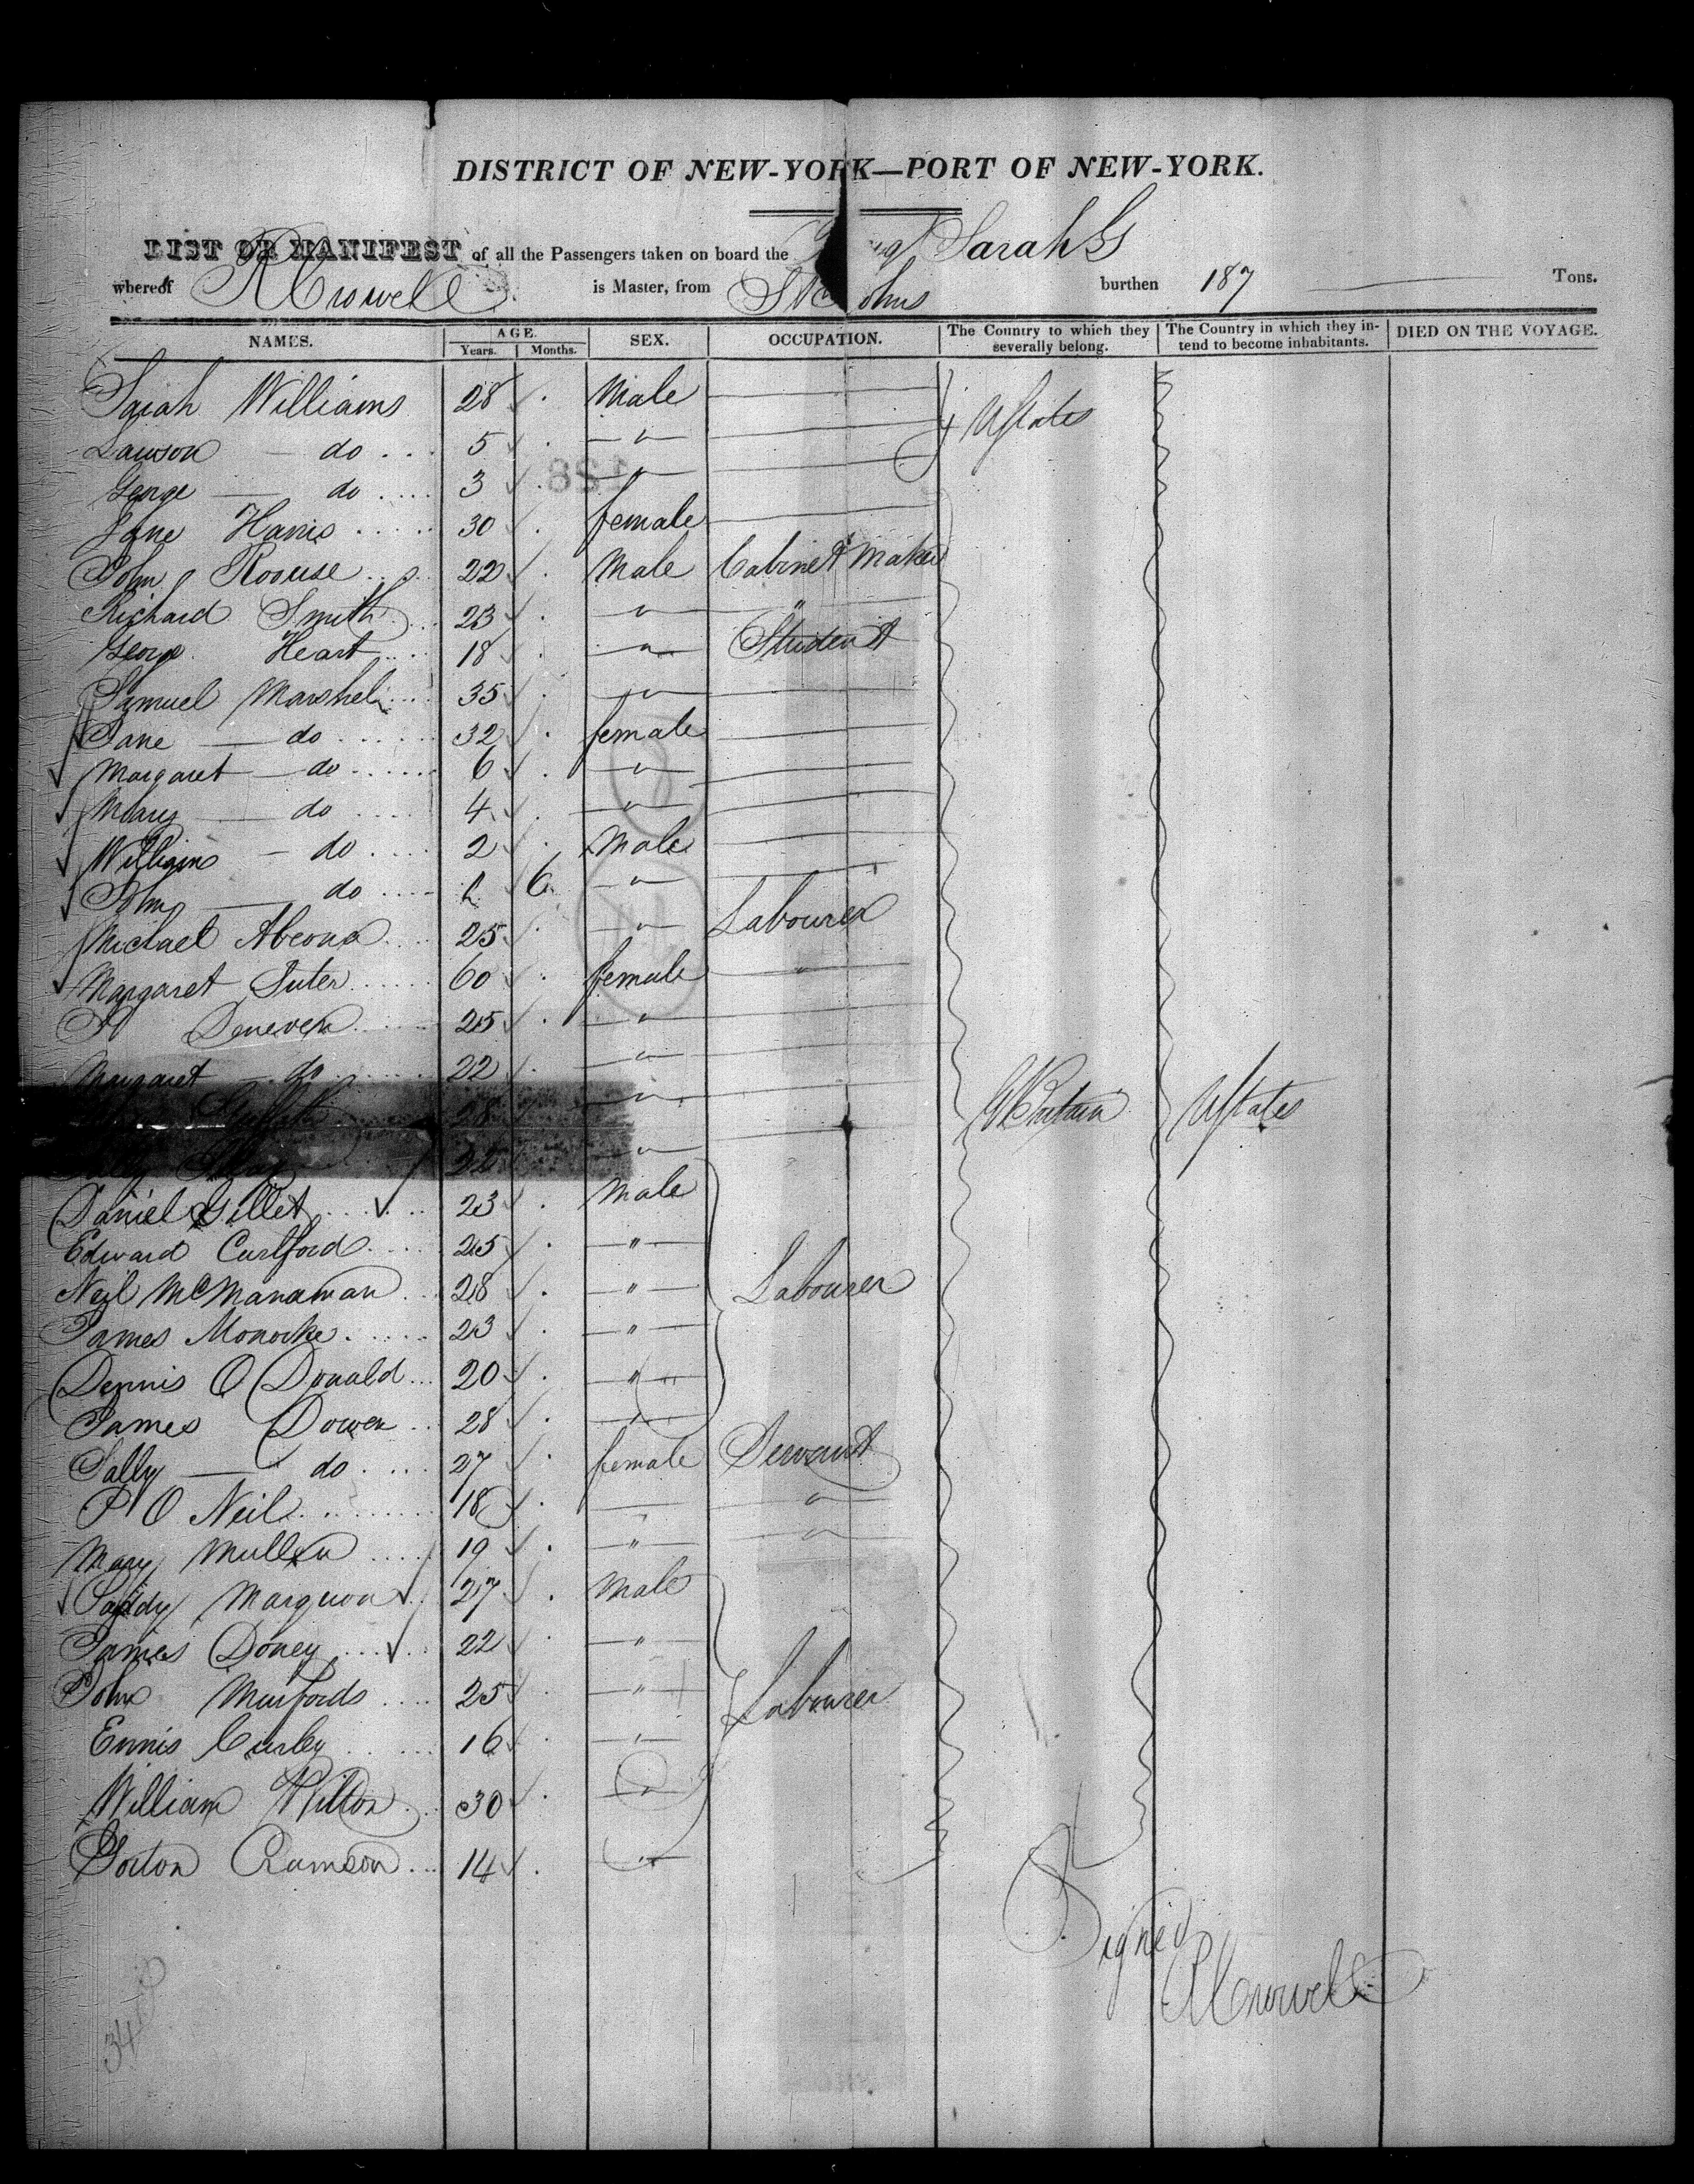 DISTRICT OF NEW-YORK—PORT OF NEW-YORK.
LIST OR MANIFEST of all the Passengers taken on board the Sarah G
whereof R Crowell is Master, from St Johns burthen 187 Tons.
NAMES. AGE. Years. Months. SEX. OCCUPATION. The Country to which they severally belong. The Country in which they intend to become inhabitants. DIED ON THE VOYAGE.
Williams 28 Male
Lawson do 5 "
George do 3 " U States
Jane Harris 30 female
John Roouse 22 Male Cabinet Maker
Richard Smith 23 " "
George Heart 18 " Student
Samuel Marshel 35 "
Jane do 32 female
Margaret do 6 "
Mary do 4 "
William do 2 Male
John do 6 "
Michael 25 " Labourer
Margaret Suter 60 female
Deneven 25 "
Margaret do 22 "
28 " G Britain U States
"
Daniel Gillet 23 Male
Edward Curlford 25 "
Neil McManaman 28 " Labourer
James Monorke 23 "
Dennis O Donald 20 "
James Dowen 28 "
Sally do 27 female Servant
P O Neil 18 "
Mary Mullen 19 " "
Paddy Marguon 27 Male
James Doney 22 "
John Murfords 25 " Labourer
Ennis Curley 16 "
William Wilton 30 "
Gorton Crumson 14 "
Signed
R Crowell
34